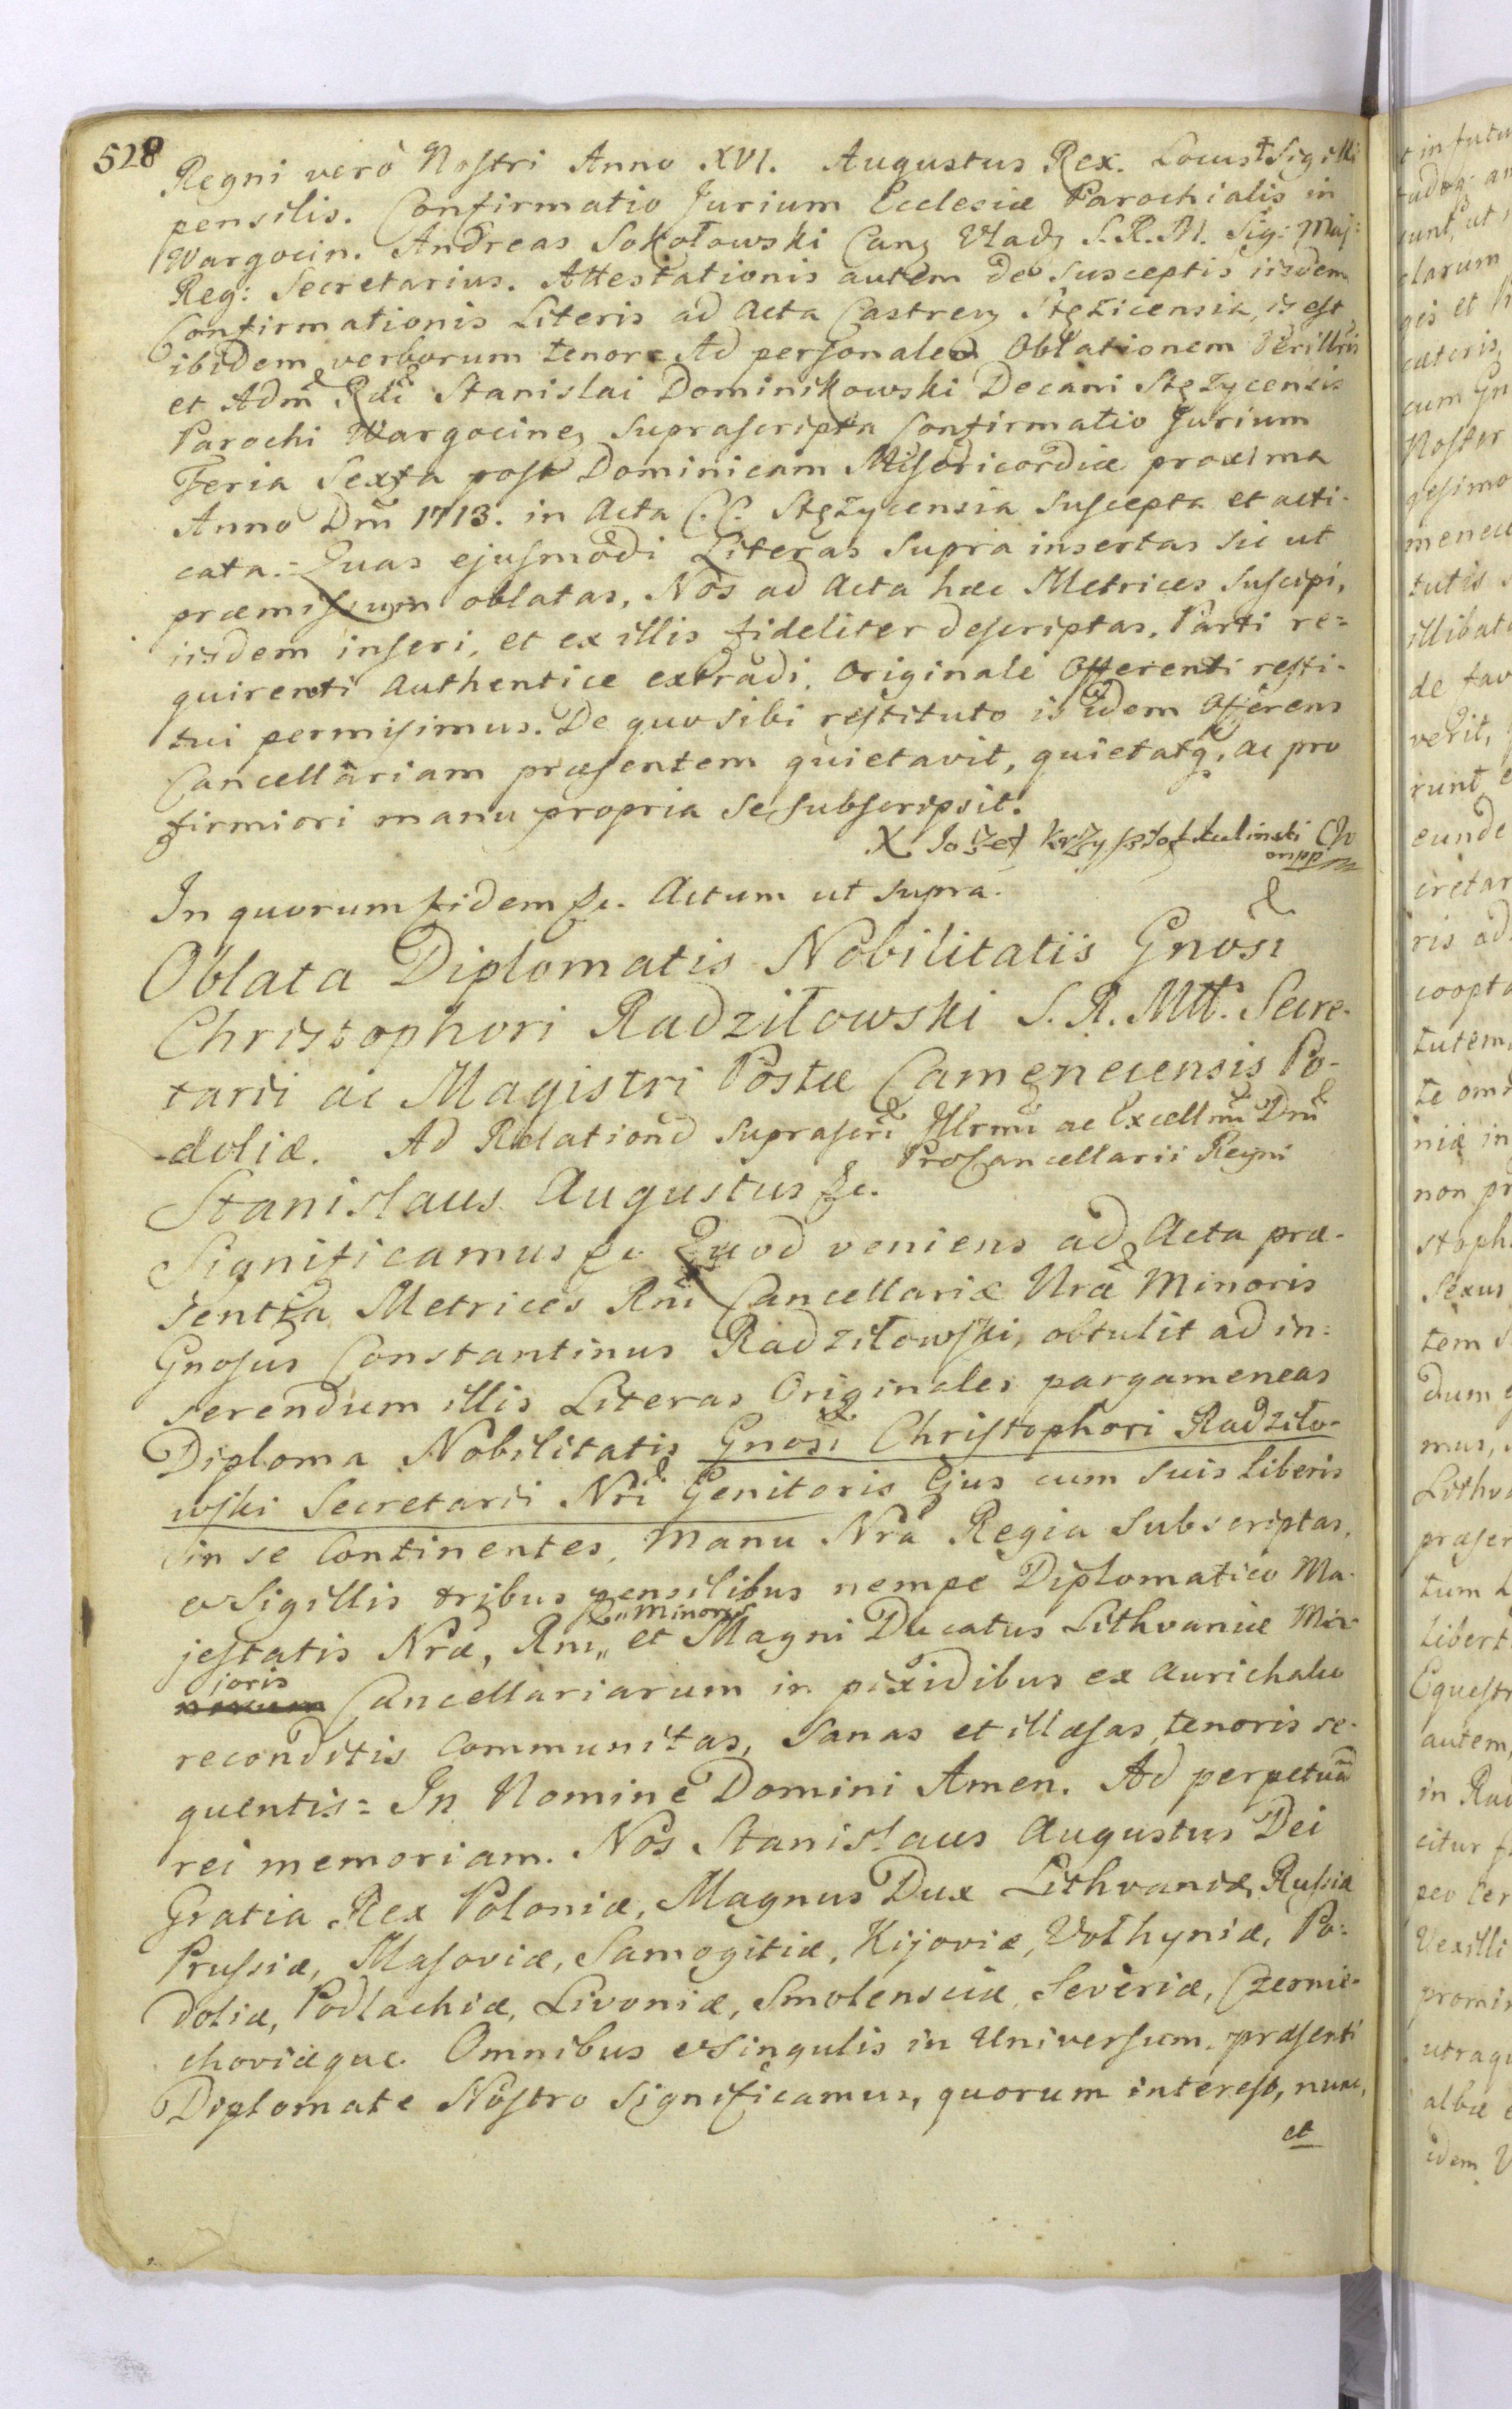 528
Regni verò Nostri Anno XVI. Augustus Rex. Locus Sigilli
pensilis. Confirmatio Jurium Ecclesiæ Parochialis in
Wargocin. Andreas Sokołowski Canz Vladz S.R.M. Sig: Maj:
Reg: Secretarius. Attestationis autem de susceptis iisdem
Confirmationis Literis ad Acta Castren Stęzicensia, is est
ibidem verborum tenor = Ad personalem Oblationem
et Adm Rdi Stanislai Dominikowski Decani Stęzycensis
Parochi Wargocinen suprascripta Confirmatio Jurium
Feria Sexta post Dominicam Misericordiæ proxima
Anno Dni 1713. in Acta C.C. Stęzycensia suscepta et acti-
cata. = Quas ejusmodi Literas supra insertas sic ut
præmissum oblatas, Nos ad Acta hæc Metrices suscipi,
iisdem inseri, et ex illis fideliter descriptas, Parti re=
quirenti authentice extradi, Originale Offerenti resti-
tui permisimus. De quo sibi restituto is idem Offerens
Cancellariam præsentem quietavit, quietatq, ac pro
firmiori manu propria se subscripsit.
X Jozef Krzysztof Kulinski
mpp
In quorum fidem &c. Actum ut supra.
Oblata Diplomatis Nobilitatis Gnosi
Christophori Radziłowski S.R.Mtt. Secre-
tarii ac Magistri Postæ Camenecensis Po-
doliæ. Ad Relationem suprascri Illrmi ac Excellmi Dni
ProCancellarii Regni
Stanislaus Augustus &c.
Significamus &c. Quod veniens ad Acta præ-
sentia Metrices Rni Cancellariæ Nræ Minoris
Gnosus Constantinus Radziłowski, obtulit ad in=
serendum illis Literas Originales pargameneas
Diploma Nobilitatis Gnosi Christophori Radziło-
wski Secretarii Nri Genitoris Ejus cum suis liberis
in se Continentes, Manu Nra Regia Subscriptas,
& Sigillis tribus pensilibus nempe Diplomatico Ma-
jestatis Nræ, Rni „Minoris„ et Magni Ducatus Lithvaniæ Ma-
joris Cancellariarum in pixidibus ex aurichalco
reconditis Communitas, Sanas et illæsas, tenoris se-
quentis = In Nomine Domini Amen. Ad perpetuam
rei memoriam. Nos Stanislaus Augustus Dei
Gratia Rex Poloniæ, Magnus Dux Lithvaniæ, Russiæ
Prussiæ, Masoviæ, Samogitiæ, Kijoviæ, Volhyniæ, Po=
doliæ, Podlachiæ, Livoniæ, Smolensciæ, Severiæ, Czernie-
choviæque. Omnibus & Singulis in Universum, præsenti
Diplomate Nostro significamus, quorum interest, nunc,
et